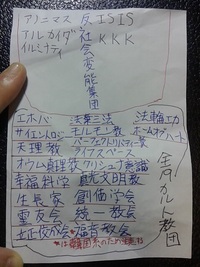 アノニマス 反 ISIS
アルカイダ 社 KKK
イルミナティ 会
変
態
集
団
エホバ 法の華三法 法輪功
サイエントロジー モルモン教 ホームオブハート
天理教 パーフェクトリバティー教
ライフスペース
オウム真理教 クリシュナ意識
幸福科学 真光文明教
生長家 創価学会
霊友会 統一教会
立正佼成会 *福音教会
全カルト教団